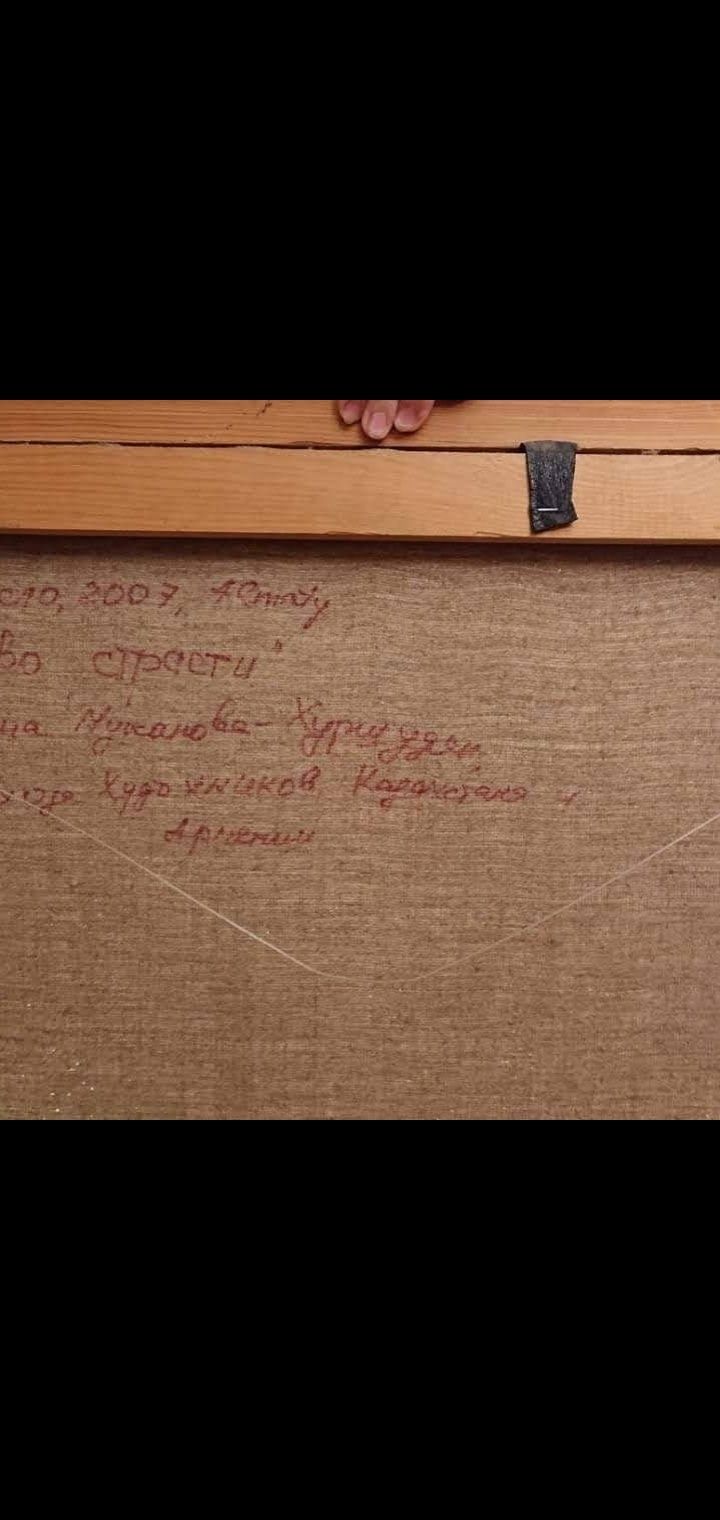 сло, 2007, Almaty
во страсти"
на Муканова-Хуршудян,
союза Художников Казахстана и
Армении